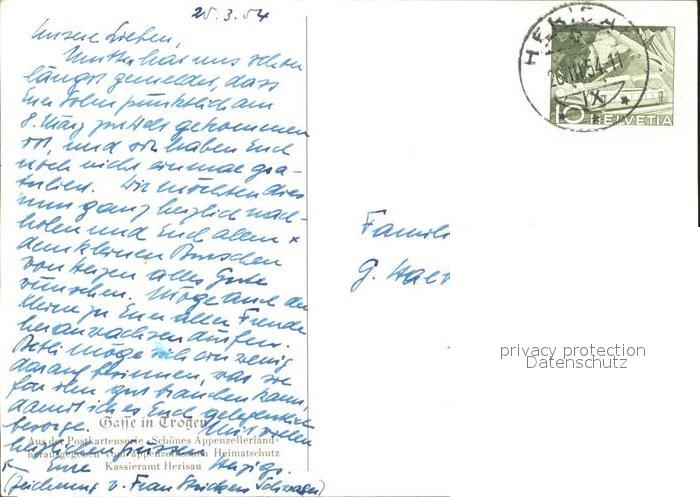 25.3.54
Unsere Lieben,
Mutter hat uns schon
längst gemeldet, dass
Euer Sohn pünktlich am
8. März zur Welt gekommen
ist, und wir haben Euch
noch nicht einmal gra-
tuliert. Wir möchten dies
nun ganz herzlich nach-
holen und Euch allen &
dem kleinen Burschen
von Herzen alles Gute
wünschen. Möge auch der
Kleine zu Euer aller Freude
heranwachsen dürfen.
möge sich ein wenig
darauf besinnen, was sie
für ihn gut brauchen kann,
damit ich es Euch gelegentlich
besorge. Mit vielen
herzlichen Grüssen
Eure
(Zeichnung v. Frau
Gasse in Trogen
Aus der Postkartenserie «Schönes Appenzellerland»
herausgegeben vom appenzellischen Heimatschutz
Kassieramt Herisau
HERISAU
26.III.54-11
IX
10 HELVETIA
Famili
G.
privacy protection
Datenschutz